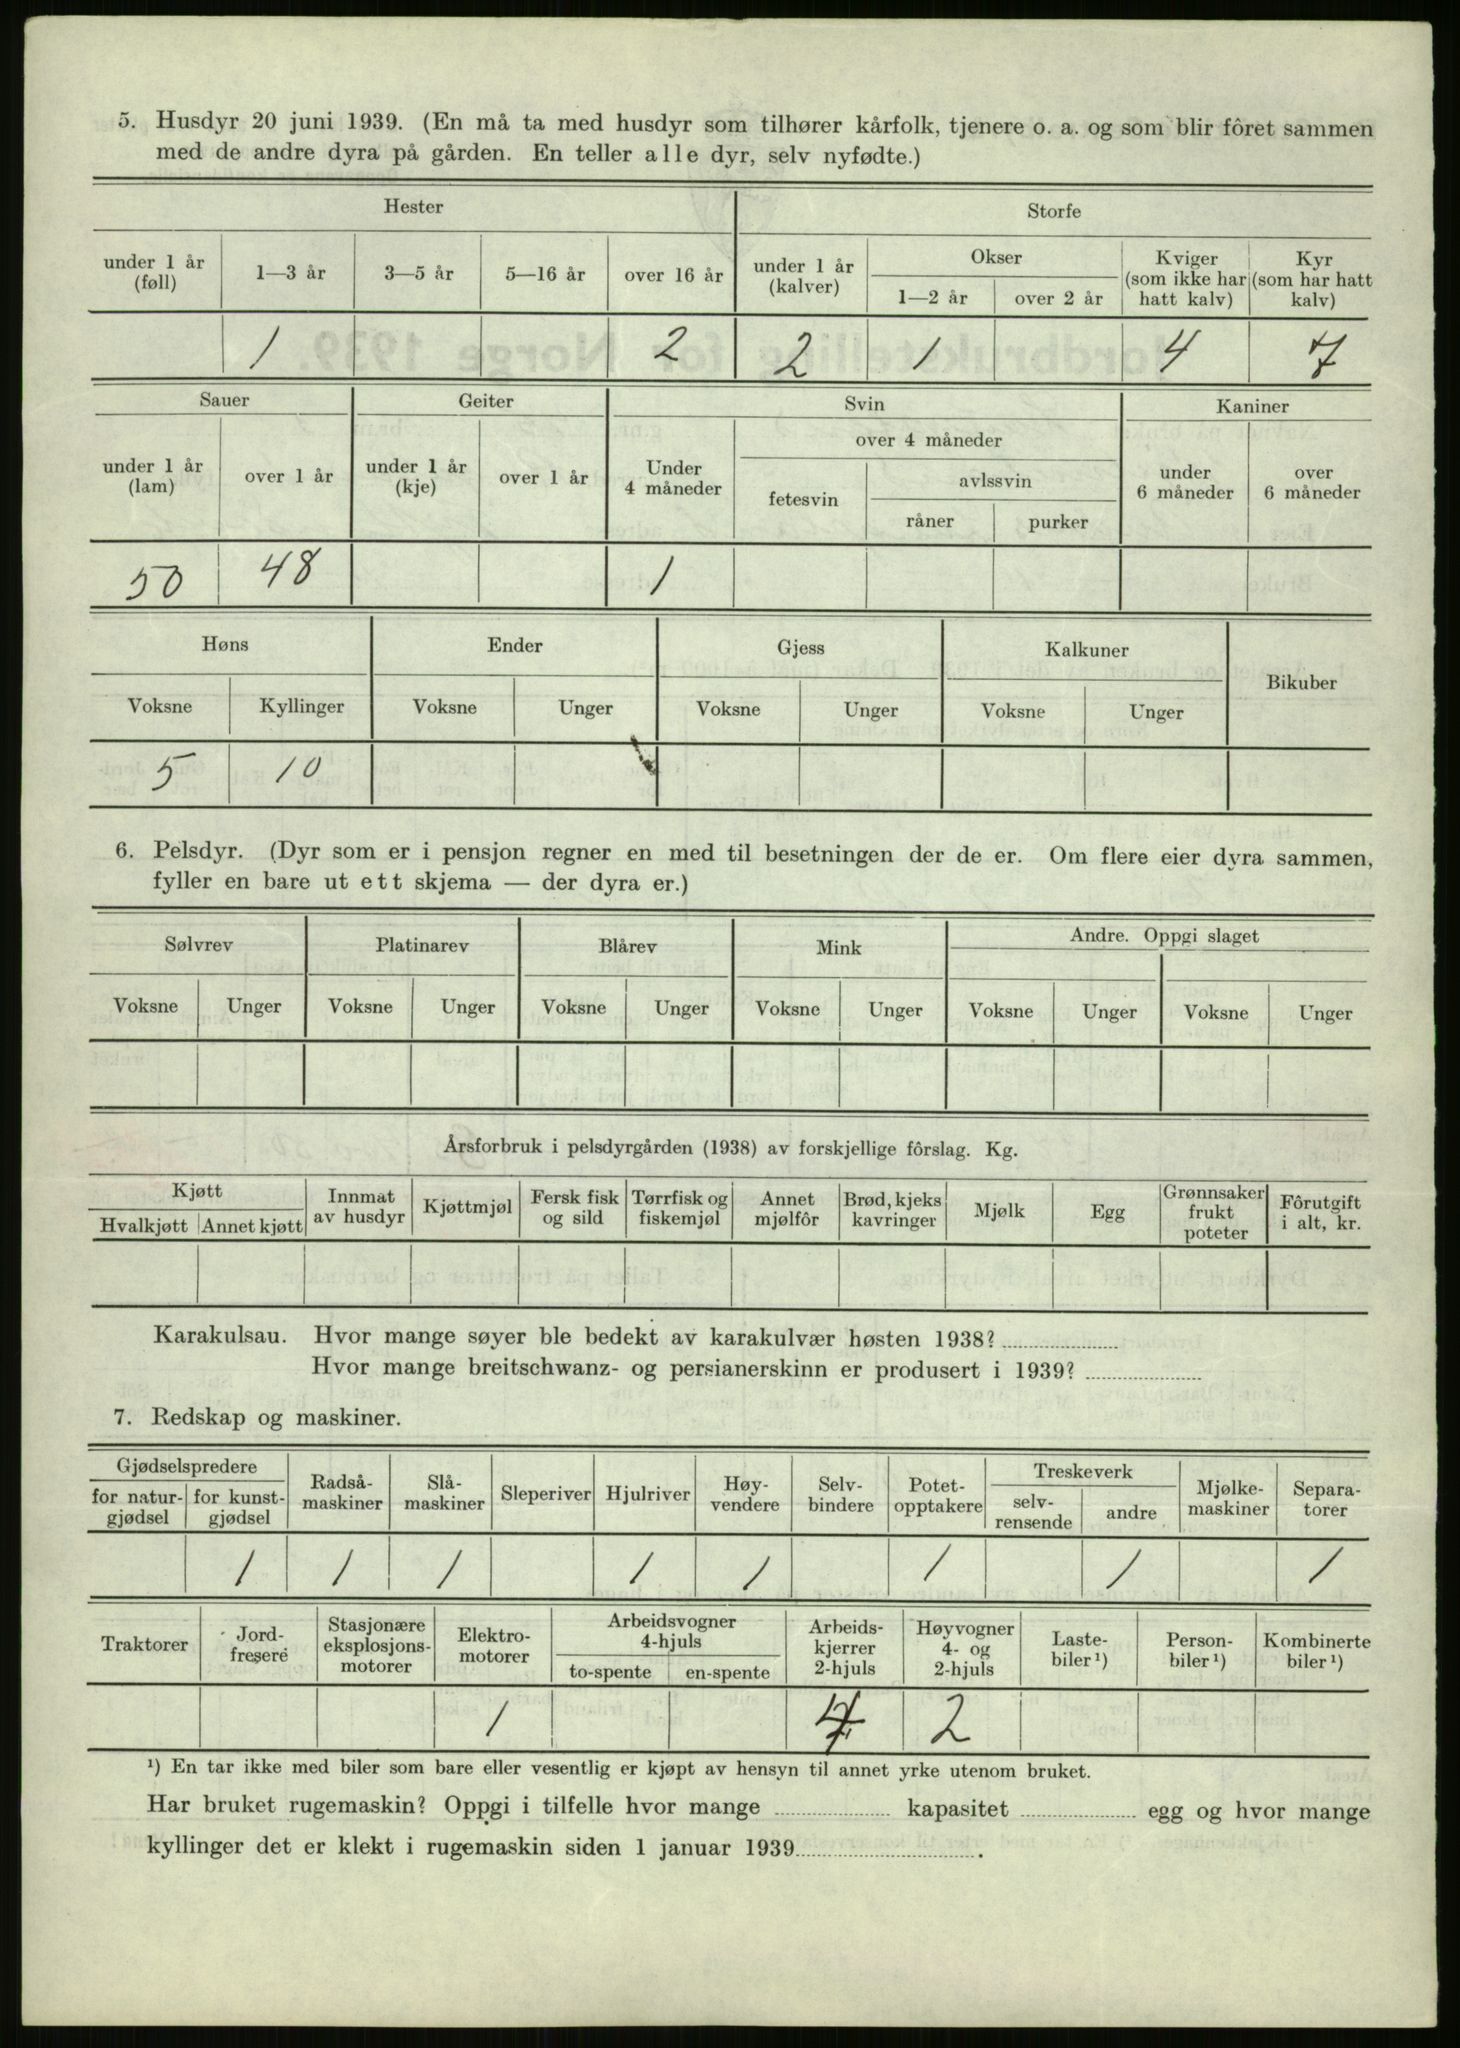 5. Husdyr 20 juni 1939. (En må ta med husdyr som tilhører kårfolk, tjenere o. a. og som blir fôret sammen
med de andre dyra på gården. En teller alle dyr, selv nyfødte.)
Hester Storfe
under 1 år (føll) 1—3 år 3—5 år 5—16 år over 16 år under 1 år (kalver) Okser 1—2 år over 2 år Kviger (som ikke har hatt kalv) Kyr (som har hatt kalv)
1 2 2 1 4 7
Sauer Geiter Svin Kaniner
under 1 år (lam) over 1 år under 1 år (kje) over 1 år Under 4 måneder over 4 måneder fetesvin avlssvin råner purker under 6 måneder over 6 måneder
50 48 1
Høns Ender Gjess Kalkuner Bikuber
Voksne Kyllinger Voksne Unger Voksne Unger Voksne Unger
5 10
6. Pelsdyr. (Dyr som er i pensjon regner en med til besetningen der de er. Om flere eier dyra sammen,
fyller en bare ut ett skjema — der dyra er.)
Sølvrev Platinarev Blårev Mink Andre. Oppgi slaget
Voksne Unger Voksne Unger Voksne Unger Voksne Unger Voksne Unger Voksne Unger
Årsforbruk i pelsdyrgården (1938) av forskjellige fôrslag. Kg.
Kjøtt Hvalkjøtt Annet kjøtt Innmat av husdyr Kjøttmjøl Fersk fisk og sild Tørrfisk og fiskemjøl Annet mjølfôr Brød, kjeks kavringer Mjølk Egg Grønnsaker frukt poteter Fôrutgift i alt, kr.
Karakulsau. Hvor mange søyer ble bedekt av karakulvær høsten 1938?
Hvor mange breitschwanz- og persianerskinn er produsert i 1939?
7. Redskap og maskiner.
Gjødselspredere for natur-gjødsel for kunst-gjødsel Radså-maskiner Slå-maskiner Sleperiver Hjulriver Høy-vendere Selv-bindere Potet-opptakere Treskeverk selv-rensende andre Mjølke-maskiner Separa-torer
1 1 1 1 1 1 1 1
Traktorer Jord-fresere Stasjonære eksplosjons-motorer Elektro-motorer Arbeidsvogner 4-hjuls to-spente en-spente Arbeids-kjerrer 2-hjuls Høyvogner 4- og 2-hjuls Laste-biler ¹) Person-biler ¹) Kombinerte biler ¹)
1 2
¹) En tar ikke med biler som bare eller vesentlig er kjøpt av hensyn til annet yrke utenom bruket.
Har bruket rugemaskin? Oppgi i tilfelle hvor mange kapasitet egg og hvor mange
kyllinger det er klekt i rugemaskin siden 1 januar 1939 .